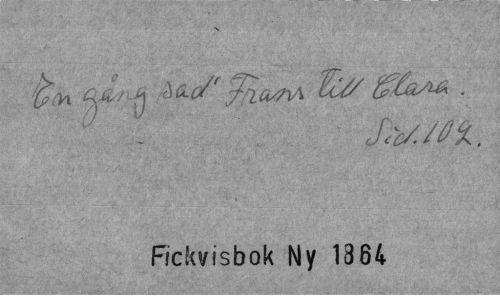 En gång sad' Frans till Clara.
Sid. 109.
Fickvisbok Ny 1864